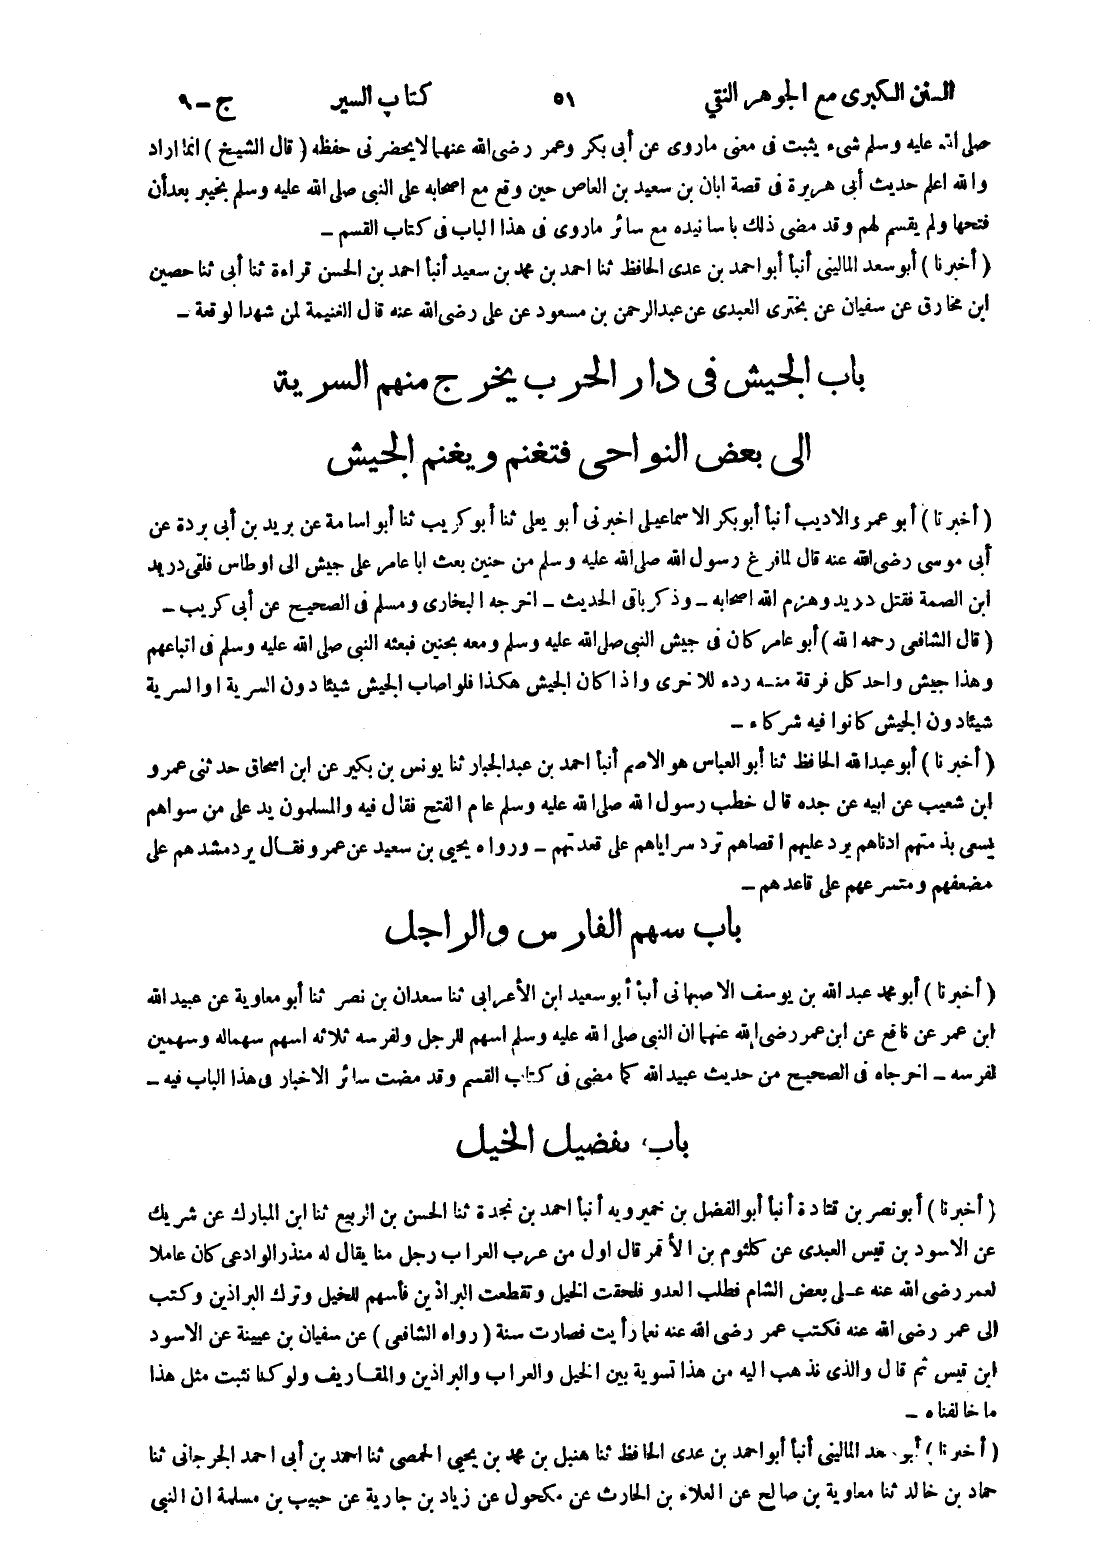 السنن الكبرى مع الجوهر النقي ٥١ كتاب السير ج – ٩
صلى الله عليه وسلم شىء يثبت فى معنى ماروى عن أبى بكر وعمر رضى الله عنهما لايحضر نى حفظه ( قال الشيخ ) انما اراد
والله اعلم حديث أبى هريرة فى قصة ابان بن سعيد بن العاص حين وقع مع اصحابه على النبى صلى الله عليه وسلم بخيبر بعدأن
فتحها ولم يقسم لهم وقد مضى ذلك باسانيده مع سائر ماروى فى هذا الباب فى كتاب القسم –
( أخبرنا ) أبوسعد المالينى أنبأ أبواحمد بن عدى الحافظ ثنا احمد بن محمد بن سعيد أنبأ احمد بن الحسن قراءة ثنا أبى ثنا حصين
ابن مخارق عن سفيان عن بخترى العبدى عن عبدالرحمن بن مسعود عن على رضى الله عنه قال الغنيمة لمن شهدا لوقعة –
باب الجيش فى دار الحرب يخرج منهم السرية
الى بعض النواحى فتغنم ويغنم الجيش
( أخبرنا ) أبو عمر والاديب أنبأ أبوبكر الاسماعيلى اخبرنى أبو يعلى ثنا أبوكريب ثنا أبواسامة عن بريد بن أبى بردة عن
أبى موسى رضى الله عنه قال لما فرغ رسول الله صلى الله عليه وسلم من حنين بعث ابا عامر على جيش الى اوطاس فلقى دريد
ابن الصمة فقتل دريد وهزم الله اصحابه – وذكر باقى الحديث – اخرجه البخارى ومسلم فى الصحيح عن أبى كريب –
( قال الشافعى رحمه الله ) أبوعامر كان فى جيش النبى صلى الله عليه وسلم ومعه بحنين فبعثه النبى صلى الله عليه وسلم فى اتباعهم
وهذا جيش واحد كل فرقة منه ردء للاخرى واذا كان الجيش هكذا فلواصاب الجيش شيئا دون السرية اوالسرية
شيئا دون الجيش كانوا فيه شركاء –
( أخبرنا ) أبوعبدالله الحافظ ثنا أبوالعباس هوالاصم أنبأ احمد بن عبدالجبار ثنا يونس بن بكير عن ابن اسحاق حدثنى عمرو
ابن شعيب عن ابيه عن جده قال خطب رسول الله صلى الله عليه وسلم عام الفتح فقال فيه والمسلمون يد على من سواهم
يسعى بذمتهم ادناهم يرد عليهم اقصاهم ترد سراياهم على قعدتهم – ورواه يحيى بن سعيد عن عمرو فقال يرد مشدهم على
مضعفهم ومتسرعهم على قاعدهم –
باب سهم الفارس والراجل
( أخبرنا ) أبومحمد عبدالله بن يوسف الاصبهانى أنبأ أبوسعيد ابن الأعرابى ثنا سعدان بن نصر ثنا أبومعاوية عن عبيدالله
ابن عمر عن نافع عن ابن عمر رضى الله عنهما ان النبى صلى الله عليه وسلم اسهم للرجل ولفرسه ثلاثه اسهم سهماله وسهمين
لفرسه – اخرجاه فى الصحيح من حديث عبيدالله كما مضى فى كتاب القسم وقد مضت سائر الاخبار فى هذا الباب فيه –
باب تفضيل الخيل
( أخبرنا ) أبونصر بن قتادة أنبأ أبوالفضل بن خميرويه أنبأ احمد بن نجدة ثنا الحسن بن الربيع ثنا ابن المبارك عن شريك
عن الاسود بن قيس العبدى عن كلثوم بن الأقمر قال اول من عرب العراب رجل منا يقال له منذر الوادعى كان عاملا
لعمر رضى الله عنه على بعض الشام فطلب العدو فلحقت الخيل وتقطعت البراذين فأسهم للخيل وترك البراذين وكتب
الى عمر رضى الله عنه فكتب عمر رضى الله عنه نعما رأيت فصارت سنة ( رواه الشافعى ) عن سفيان بن عيينة عن الاسود
ابن قيس ثم قال والذى نذهب اليه من هذا تسوية بين الخيل والعراب والبراذين والمقاريف ولوكنا نثبت مثل هذا
ما خالفناه –
( أخبرنا ) أبوسعد المالينى أنبأ أبواحمد بن عدى الحافظ ثنا هنبل بن محمد بن يحيى الحمصى ثنا احمد بن أبى احمد الجرجانى ثنا
حماد بن خالد ثنا معاوية بن صالح عن العلاء بن الحارث عن مكحول عن زياد بن جارية عن حبيب بن مسلمة ان النبى